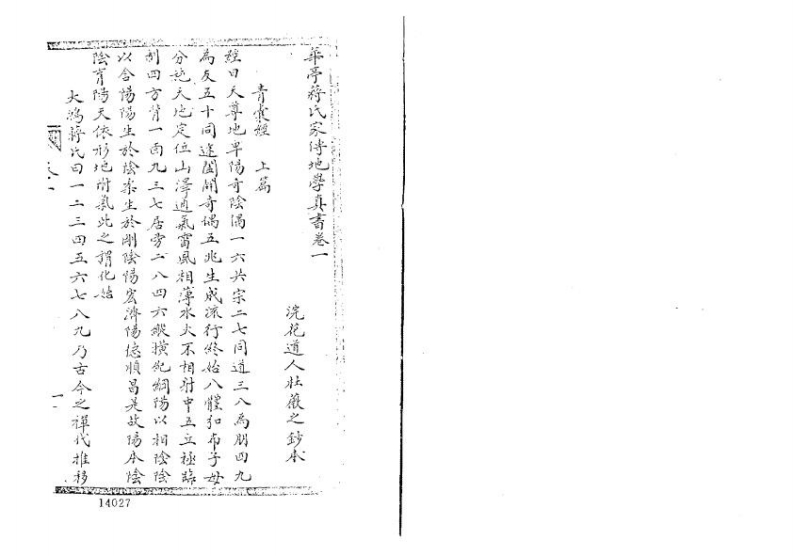 華亭蔣氏家傳地學真書卷一
浣花道人杜薇之鈔本
青囊經 上篇
經曰天尊地卑陽奇陰偶一六共宗二七同道三八為朋四九
為友五十同途闔闢奇偶五兆生成流行終始八體弘布子母
分施天地定位山澤通氣雷風相薄水火不相射中五立極臨
制四方背一面九三七居旁二八四六縱橫紀綱陽以相陰陰
以含陽陽生於陰柔生於剛陰陽宏濟陽德順昌是故陽本陰
陰育陽天依形地附氣此之謂化始
大鴻蔣氏曰一二三四五六七八九乃古今之禪代推移
卷一
一
14027